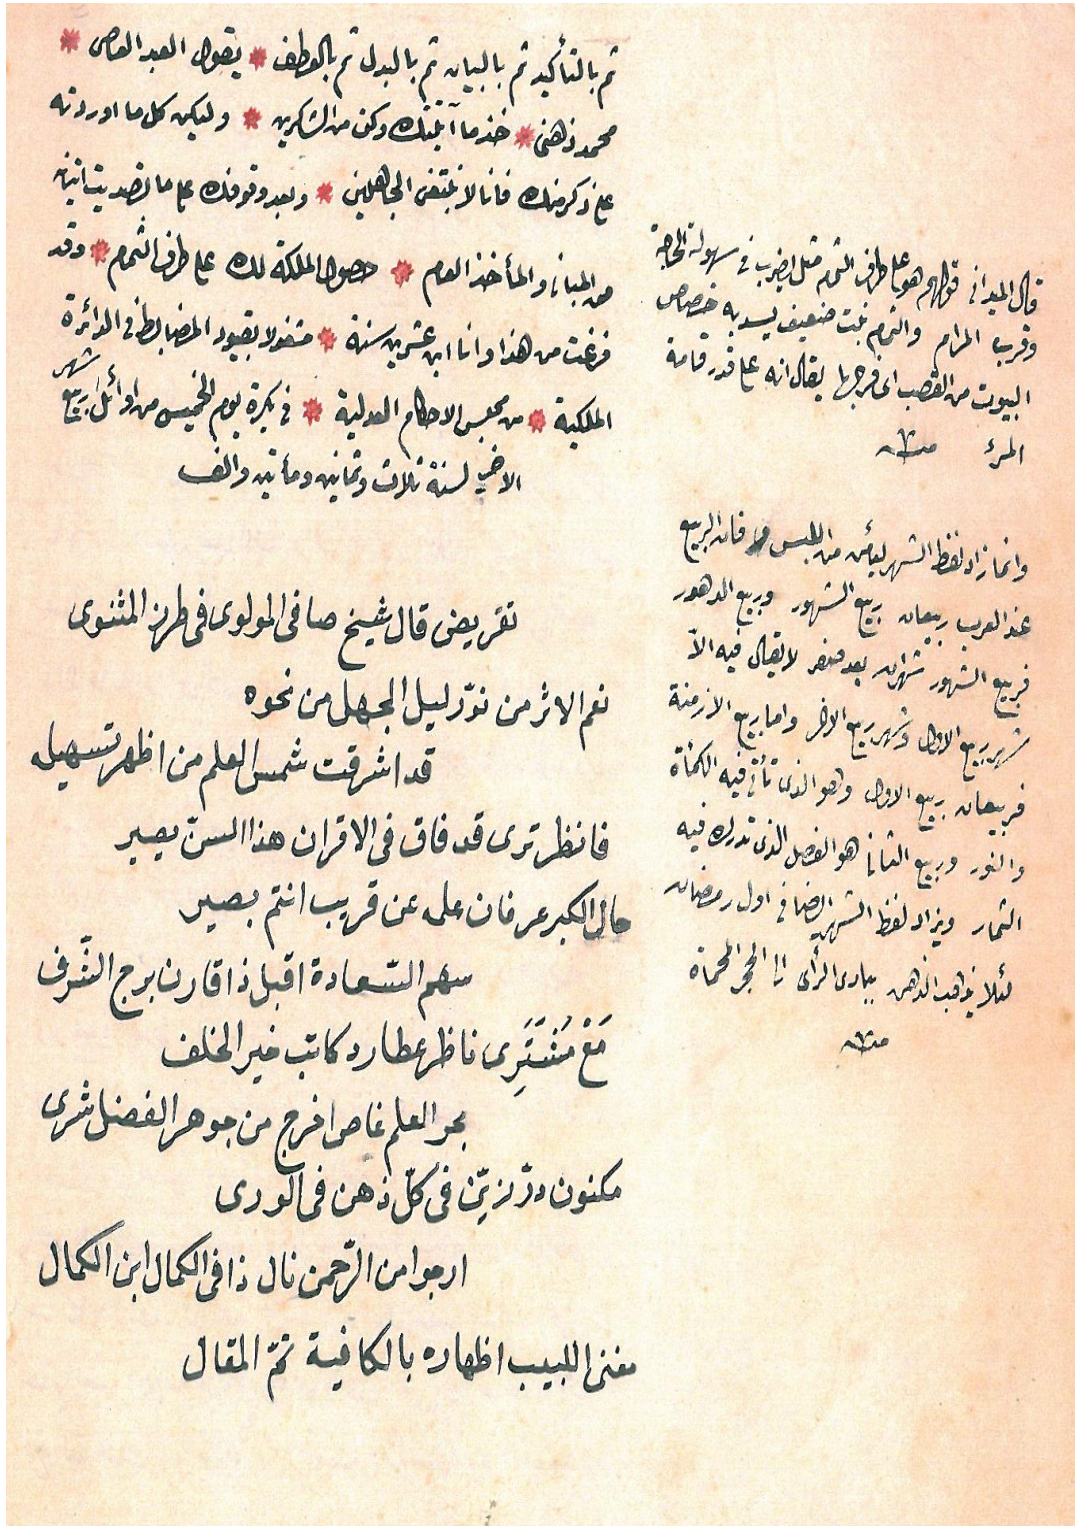 ثم بالتأكيد ثم بالبيان ثم بالبدل ثم بالعطف * يقول العبد العاصى *
محمد ذهنى * خذ ما آتيتك وكن من الشاكرين * وليكن كل ما اوردته
على ذكر منك فانا لا نبتغى الجاهلين * وبعد وقوفك على ما تصديت اتيانه
من المبانى والمأخذ العام * حصول الملكة لك على طرف الثمام * وقد
فرغت من هذا وانا ابن عشرين سنة * مشغولا بقيود المضابط فى الدائرة
الملكية * من مجلس الاحكام العدلية * فى بكرة يوم الخميس من اوائل شهر ربيع
الاخر لسنة ثلاث وثمانين ومأتين والف
تقريض قال شيخ صافى المولوى فى طرز المثنوى
نعم الاثر من نوّر ليل الجهل من نحوه
قد اشرقت شمس العلم من اظهر تسهيله
فانظر ترى قد فاق فى الاقران هذا السنّ يصير
حال الكبر عرفان علمه عن قريب انتم بصير
سهم السّعادة اقبل ذا قارن برج الشّرف
مَعْ مُشْتَرِى ناظر عطارد كاتب خير الخلف
بحر العلم غاص اخرج من جوهر الفضل شرى
مكنون درّ زيّن فى كلّ ذهن فى الورى
ارجو من الرّحمن نال ذا فى الكمال ابن الكمال
مغنى اللبيب اظهاره بالكافية تمّ المقال
قال الميدانى قولهم هو على طرف الثمام مثل يضرب فى سهولة الحاجة
وقرب المرام والثمام نبت ضعيف يسد به خصاص
البيوت من القصب اى فرجها يقال انه على قدر قامة
المرء منه
وانما زاد لفظ الشهر ليؤمن من اللبس فان الربيع
عند العرب ربيعان ربيع الشهور وربيع الدهور
فربيع الشهور شهران بعد صفر لا يقال فيه الاّ
شهر ربيع الاول وشهر ربيع الاخر واما ربيع الازمنة
فربيعان ربيع الاول وهو الذى تأتى فيه الكمأة
والنور وربيع الثانى هو الفصل الذى تدرك فيه
الثمار ويزاد لفظ الشهر ايضا فى اول رمضان
لئلا يذهب الذهن ببادى الرأى الى الحجر المحماة
منه